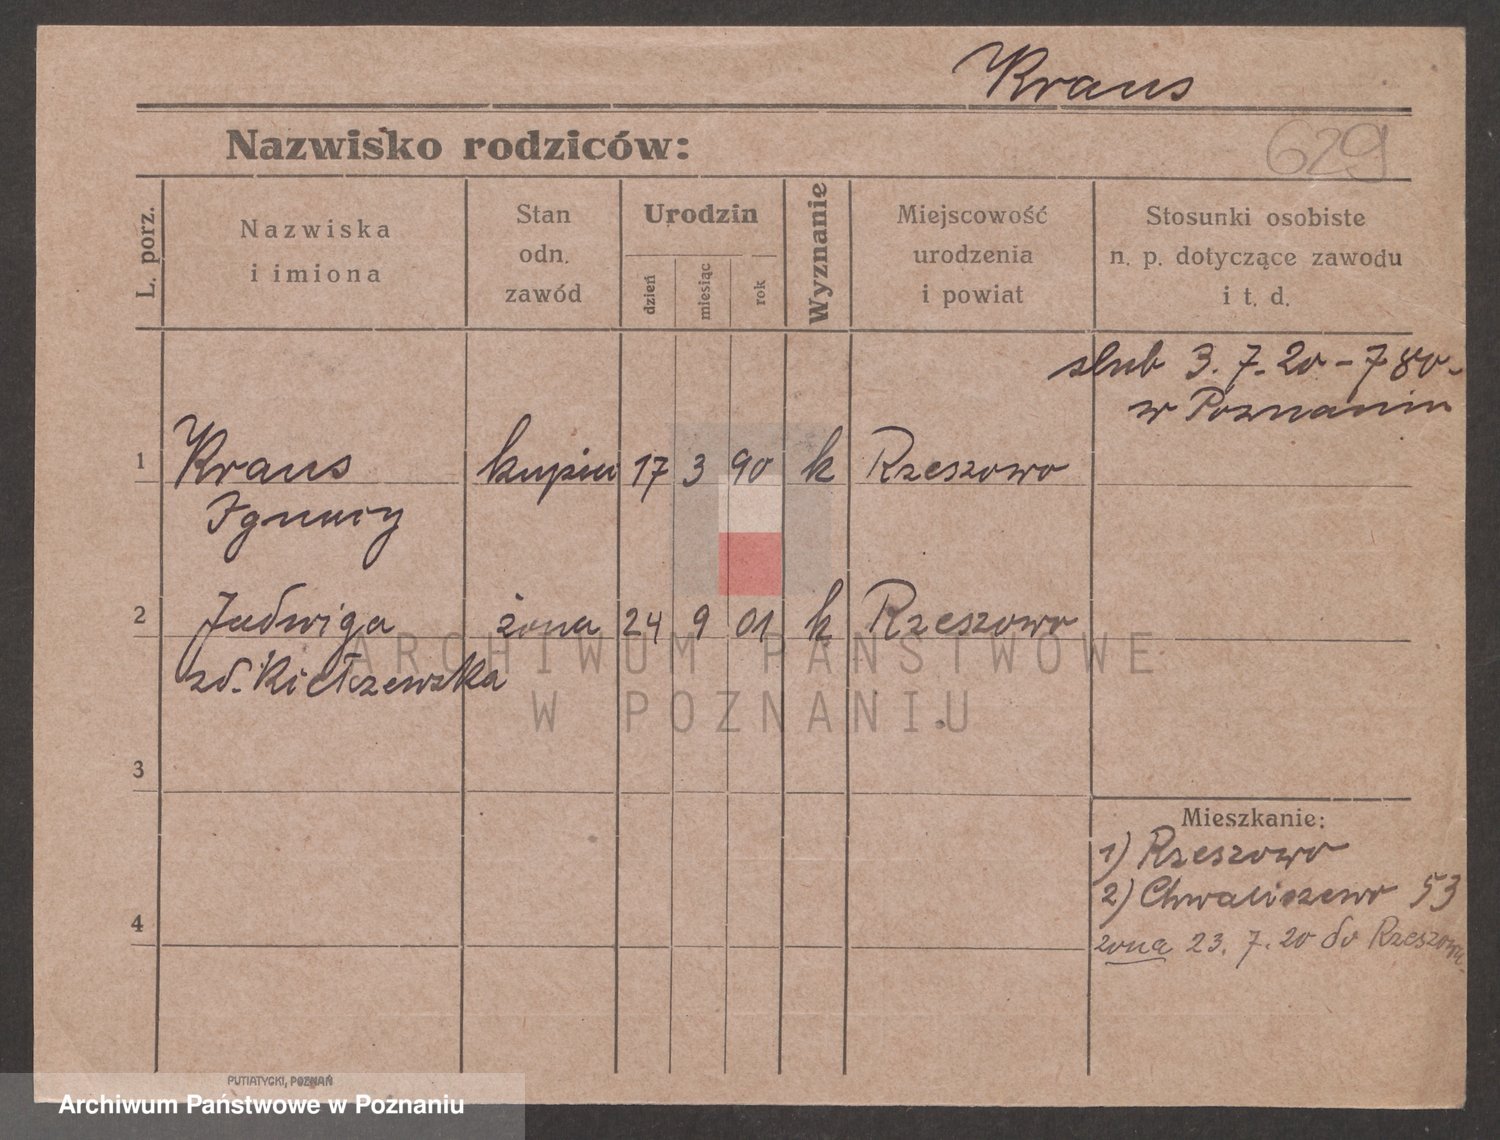 Kraus
Nazwisko rodziców:
629
L. porz.
Nazwiska
i imiona
Stan
odn.
zawód
Urodzin
dzień
miesiąc
rok
Wyznanie
Miejscowość
urodzenia
i powiat
Stosunki osobiste
n. p. dotyczące zawodu
i t. d.
slub 3. 7. 20 - 780.
w Poznaniu
1 Kraus kupiec 17 3 90 k Rzeszowo
Ignacy
2 Jadwiga żona 24 9 01 k Rzeszowo
zd. Kiełczewska
ARCHIWUM PAŃSTWOWE
W POZNANIU
3
Mieszkanie:
1) Rzeszowo
2) Chwaliszewo 53
4
zona 23. 7. 20 do Rzeszowa
PUTIATYCKI, POZNAŃ
Archiwum Państwowe w Poznaniu